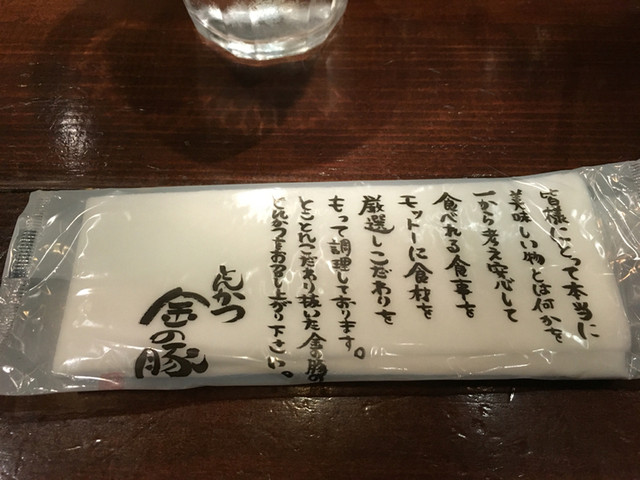 皆様にとって本当に
美味しい物とは何かを
一から考え安心して
食べれる食事を
モットーに食材を
厳選しこだわりを
もって調理しております。
とことんこだわり抜いた金の豚の
とんかつをお召し上がり下さい。
とんかつ
金の豚